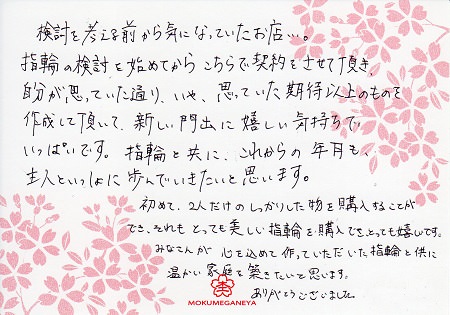 検討を考える前から気になっていたお店…。
指輪の検討を始めてからこちらで契約をさせて頂き、
自分が思っていた通り、いや、思っていた期待以上のものを
作成して頂いて、新しい門出に嬉しい気持ちで
いっぱいです。指輪と共に、これからの年月も、
主人といっしょに歩んでいきたいと思います。
初めて、2人だけのしっかりした物を購入することが
でき、それもとっても美しい指輪を購入できとっても嬉しいです。
みなさんが心を込めて作っていただいた指輪と供に
温かい家庭を築きたいと思います。
ありがとうございました。
MOKUMEGANEYA